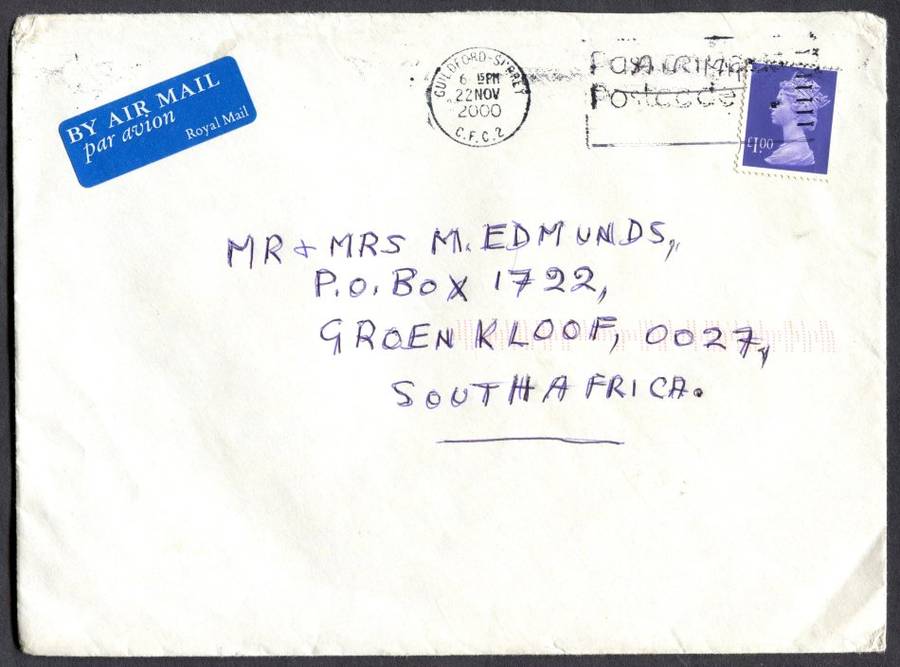 BY AIR MAIL
par avion
Royal Mail
GUILDFORD-SURREY
6 15PM
22 NOV
2000
C.F.C.2
Postcode
£1.00
MR + MRS M. EDMUNDS,
P.O. BOX 1722,
GROENKLOOF, 0027,
SOUTH AFRICA.